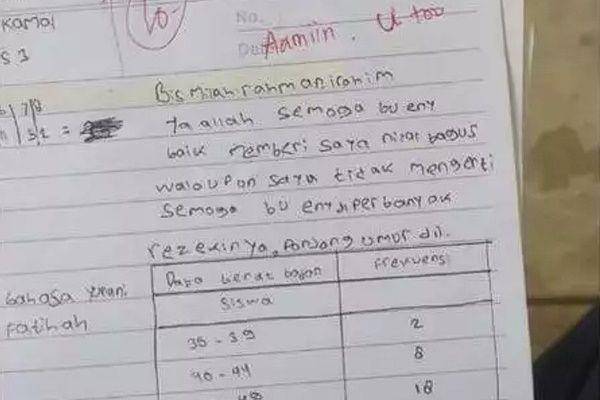 Kamal
S 3
10
No.
Aamiin. U too
Bismilahrahmanirohim
Ya allah semoga bu eny
baik memberi saya nilai bagus
walaupun saya tidak mengerti
semoga bu eny diperbanyak
rezekinya, panjang umur dll.
bahasa yunani
Fatihah
Data berat badan Frekuensi
siswa
35 - 39 2
40 - 44 8
18